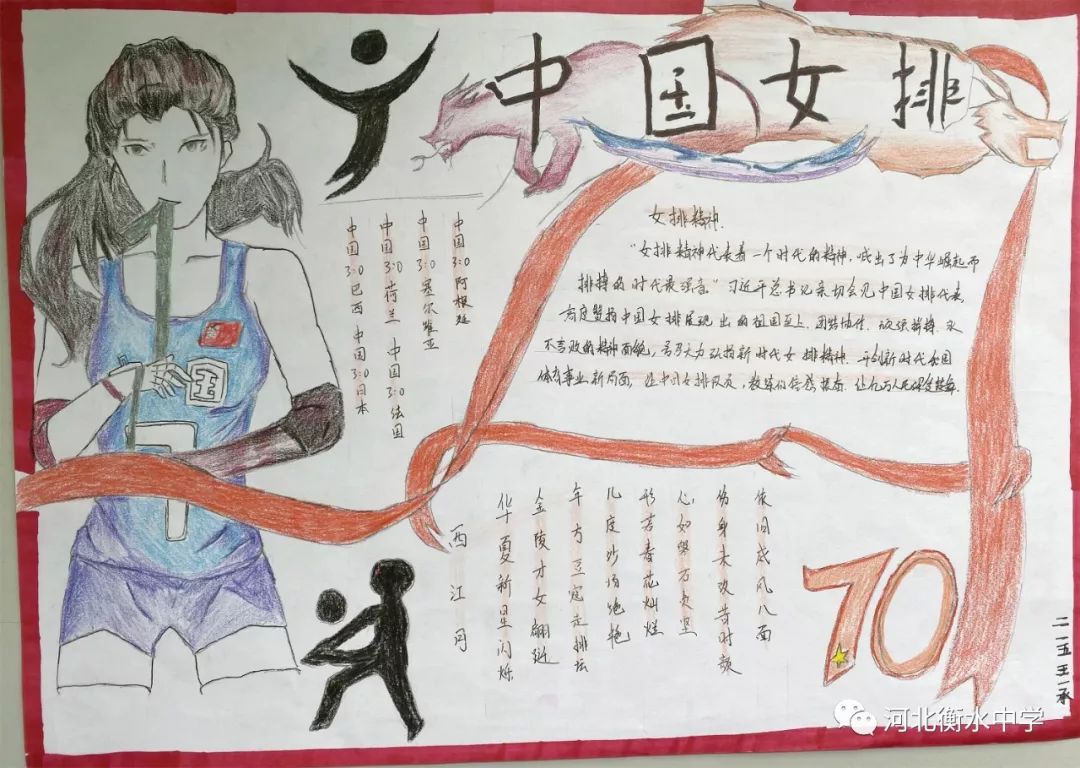 中国女排
中国3:0阿根廷
中国3:0塞尔维亚
中国3:0荷兰 中国3:0法国
中国3:0巴西 中国3:0日本
女排精神.
"女排精神代表着一个时代的精神,喊出了为中华崛起而
拼搏的时代最强音"习近平总书记亲切会见中国女排代表,
高度赞扬中国女排展现出的祖国至上、团结协作、顽强拼搏、永
不言败的精神面貌,号召大力弘扬新时代女排精神 开创新时代我国
体育事业新局面,让中国女排队员,教练们倍感振奋.让亿万人民深受鼓舞.
国
1
西江月
华夏新星闪烁
金陵才女翩跹
年方豆蔻走排坛
几度沙场绝艳
形若春花灿烂
心如 坚
伤身未改昔时颜
依旧威风八面
70
二一五王一承
河北衡水中学